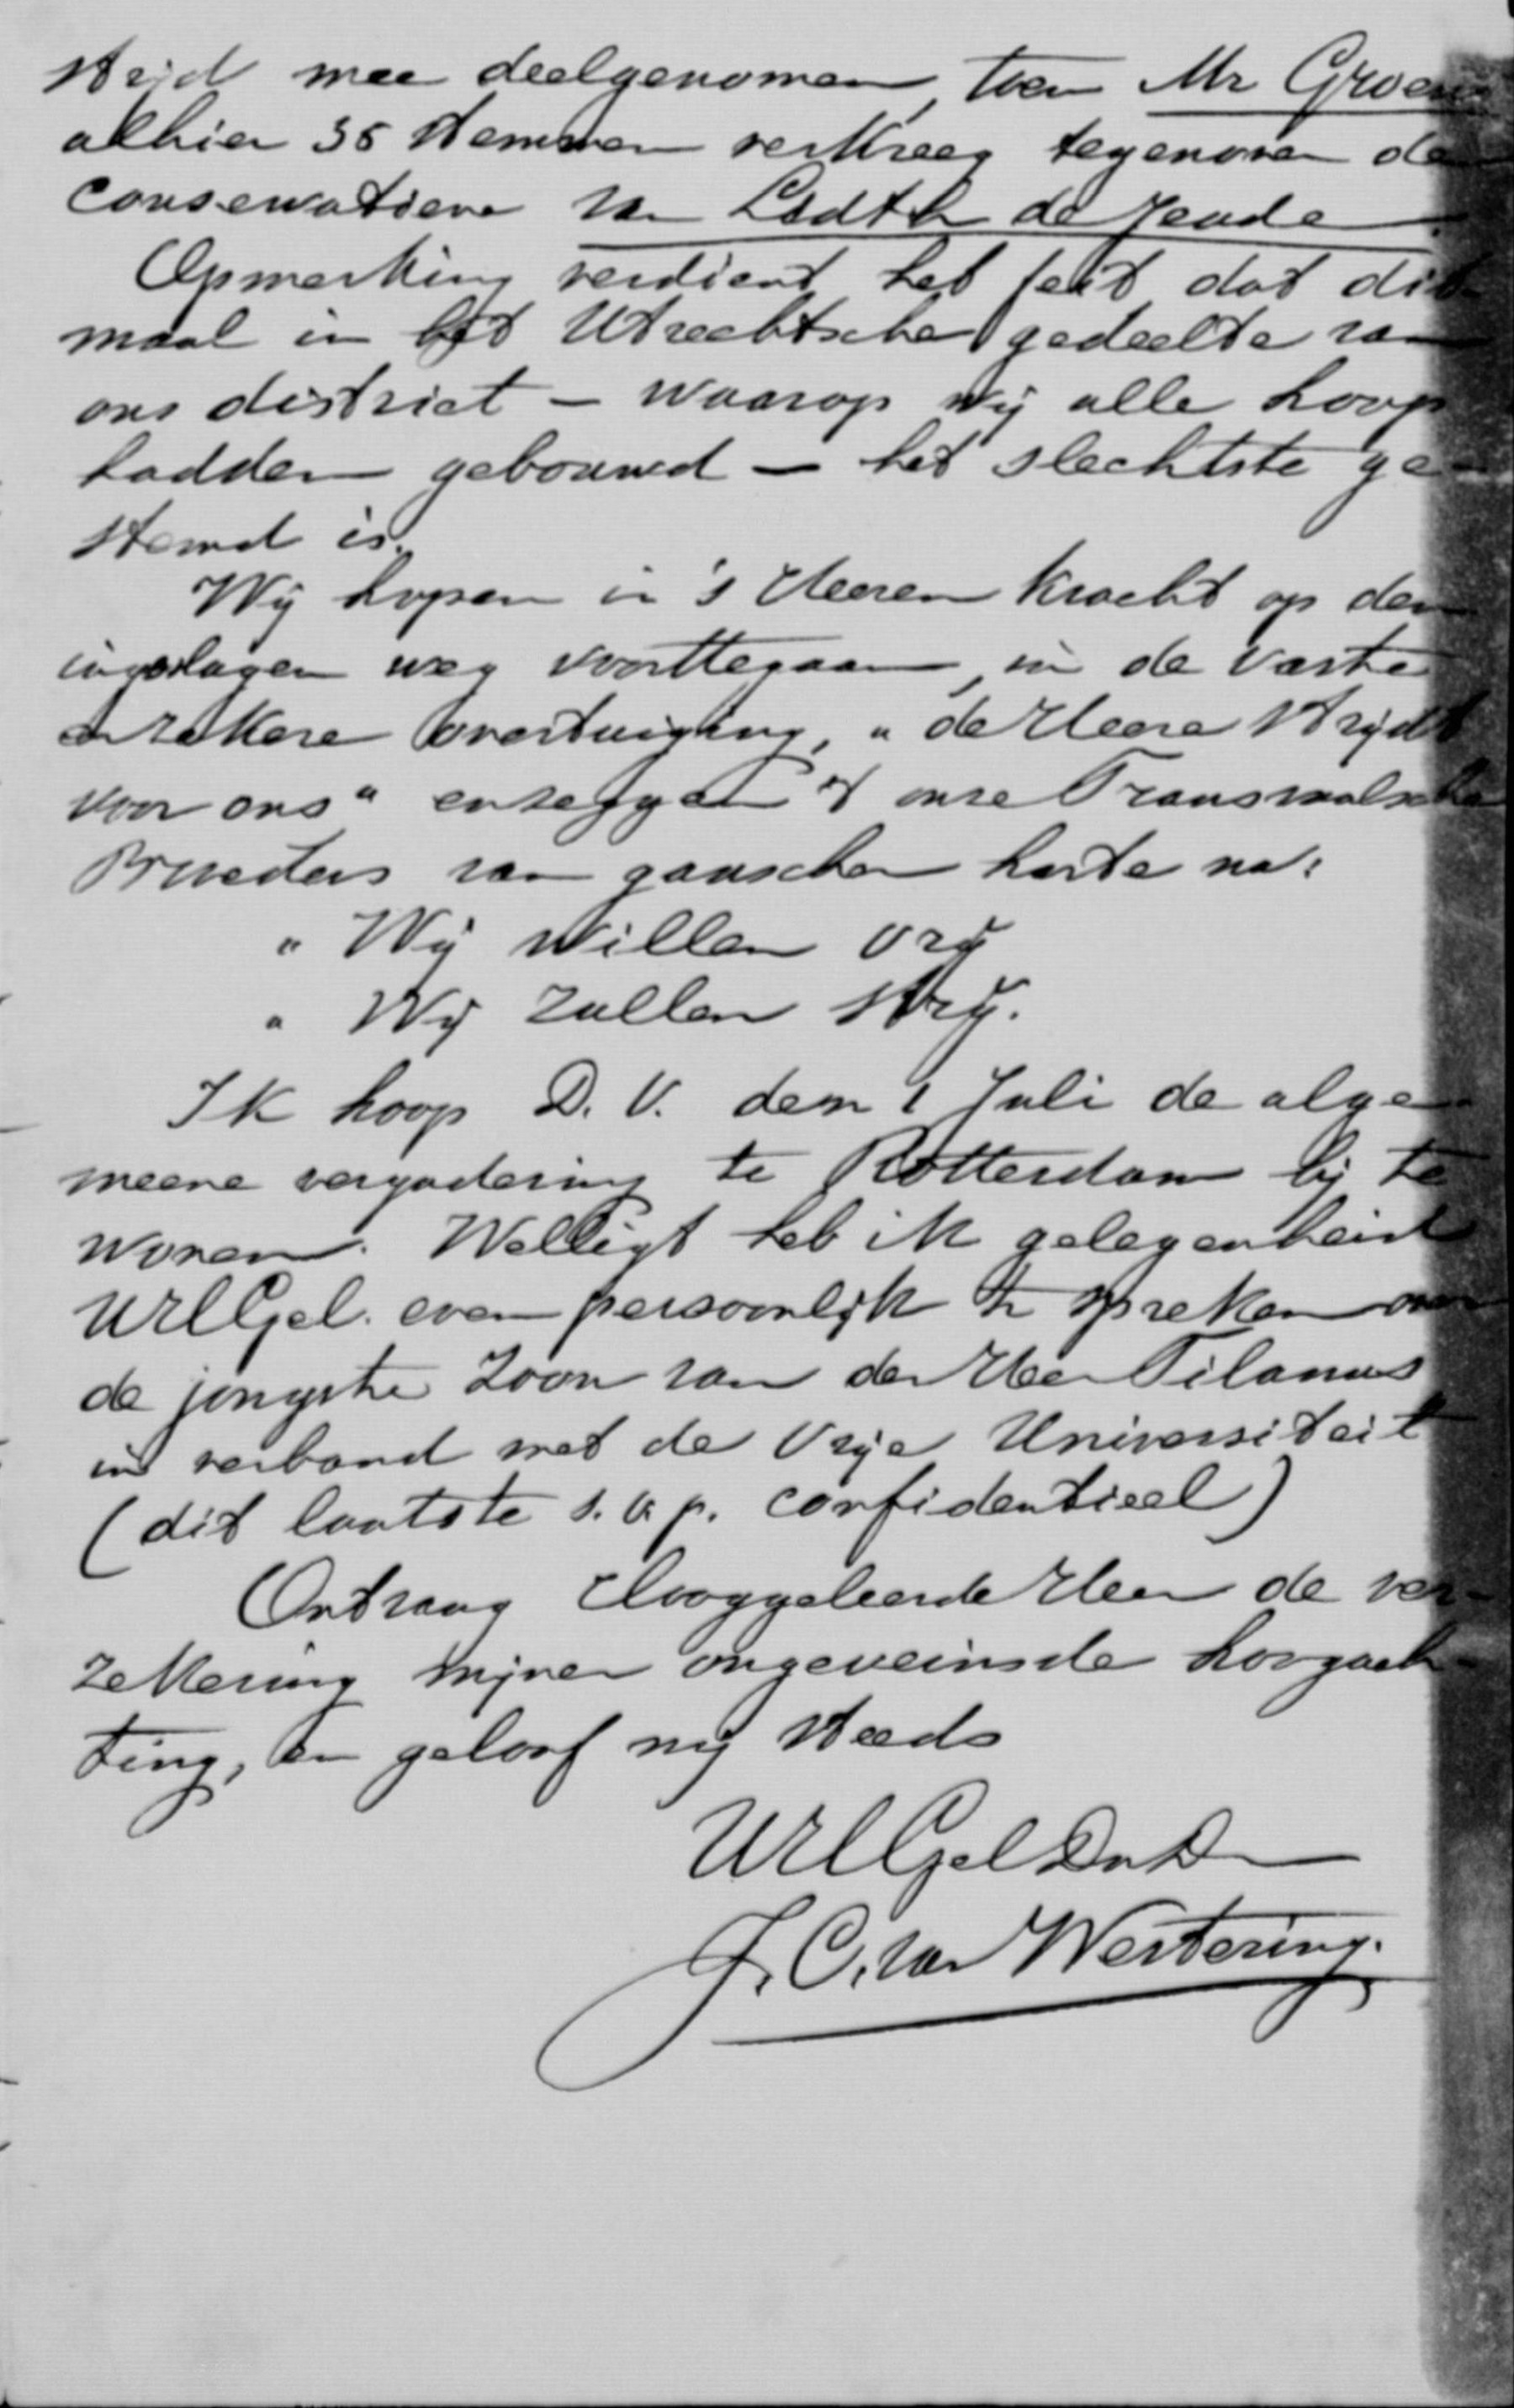 strijd mee deelgenomen, toen Mr Groen
alhier 35 stemmen verkreeg tegenover den
Conservatieve van Lidth de Jeude.
Opmerking verdient het feit dat dit-
maal in het Utrechtsche gedeelte van
ons district - waarop wij alle hoop
hadden gebouwd - het slechtste ge-
stemd is.
Wij hopen in 's Heeren kracht op den
ingeslagen weg voorttegaan, in de vaste
en zekere overtuiging, "de Heere strijdt
voor ons" en zeggen onze Transvaalsche
Broeders van ganscher harte na:
"Wij willen vrij
"Wij zullen vrij.
Ik hoop D.V. den 1 Juli de alge-
meene vergadering te Rotterdam bij te
wonen. Welligt heb ik gelegenheid
UHGel. even persoonlijk te spreken over
de jongste Zoon van den Heer Tilanus
in verband met de Vrije Universiteit
(dit laatste s.v.p. confidentieel)
Ontvang Hooggeleerde Heer de ver-
zekering mijner ongeveinsde hoogach-
ting, en geloof mij steeds
UHGel DvD
J. C. van Westering.